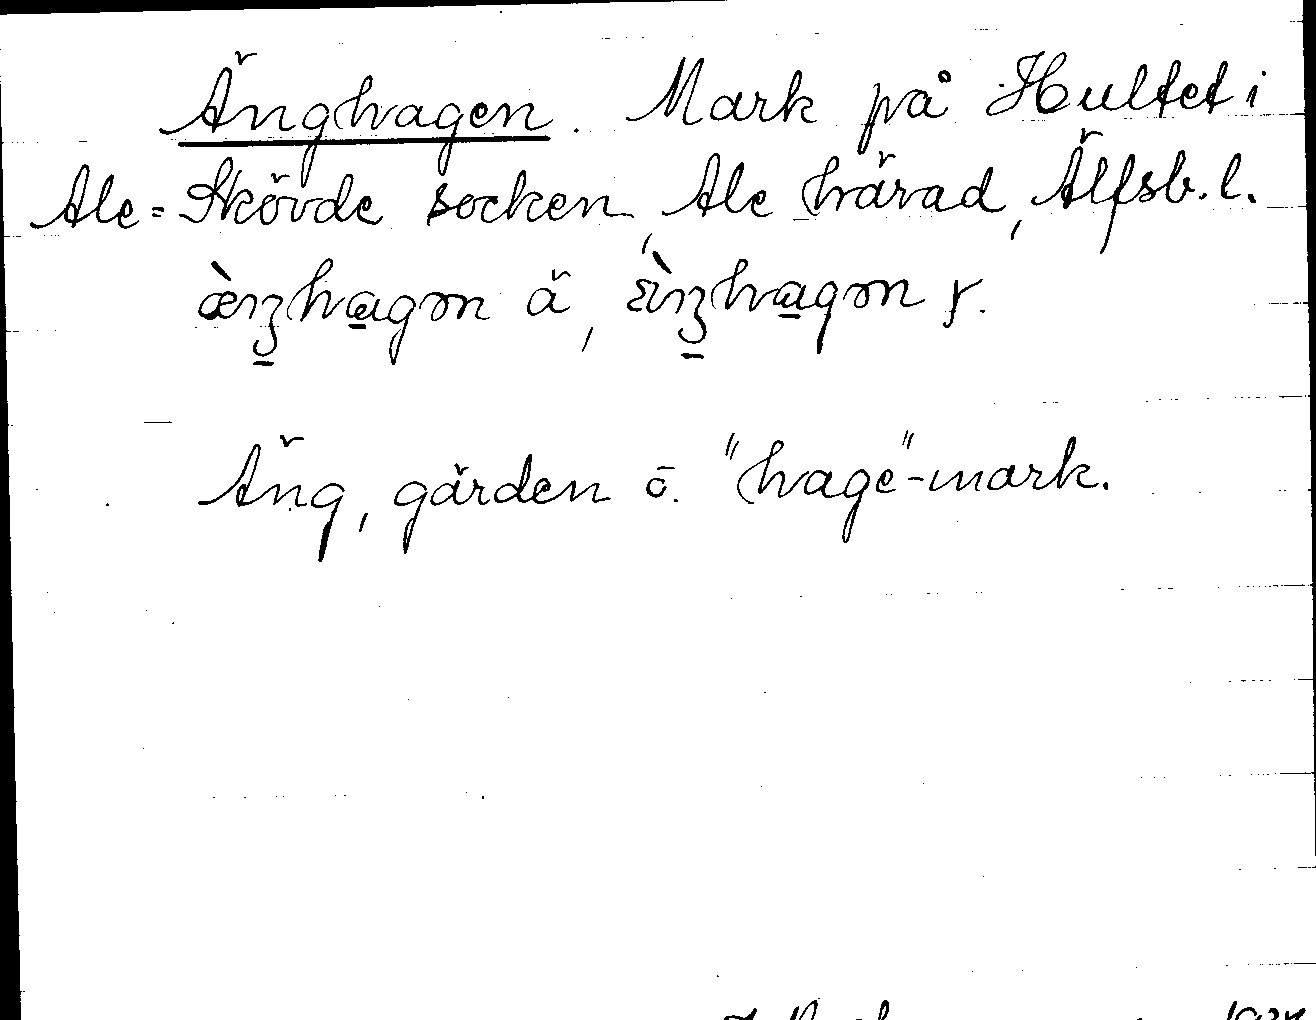 Änghagen. Mark på Hultet i
Ale-Skövde socken, Ale härad, Älfsb. l.
æ̀ŋhagən ä, ǜŋhagən y.
Äng, gärden o. "hage"-mark.